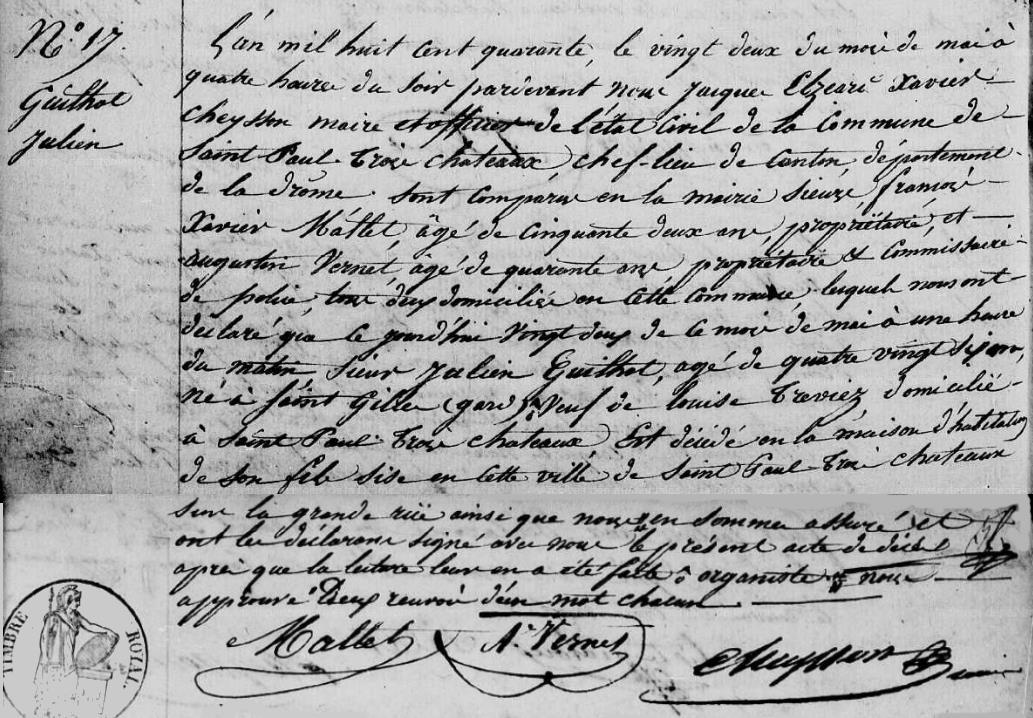 N.° 17.
Guilhot
Julien
L'an mil huit cent quarante, le vingt deux du mois de mai à
quatre heures du soir pardevant nous Jacques Elzéard Xavier
Cheysson maire et officier de L'état Civil de la Commune de
Saint Paul-trois châteaux, chef-lieu de canton, département
de la drôme, sont comparus en la mairie sieurs, françois
Xavier Mallet, âgé de cinquante deux ans, propriétaire, et
augustin Vernet, âgé de quarante ans, propriétaire & Commissaire
de police, tous deux domiciliés en cette commune, lesquels nous ont
déclaré que ce jourd'hui Vingt deux de ce mois de mai à une heure
du matin sieur Julien Guilhot, agé de quatre vingt six ans,
né à Saint Gilles (gard), Veuf de Louise Treviez domicilié
à Saint Paul-trois châteaux, Est décédé en la maison d'habitation
de son fils sise en cette ville de Saint Paul-trois châteaux
sur la grande rüe ainsi que nous nous en sommes assuré, et
ont les déclarans signé avec nous le présent acte de décès
après que la lecture leur en a été faite organiste nous
approuvé Deux renvois d'un mot chacun
Mallet A.te Vernet Cheysson maire
TIMBRE ROYAL.